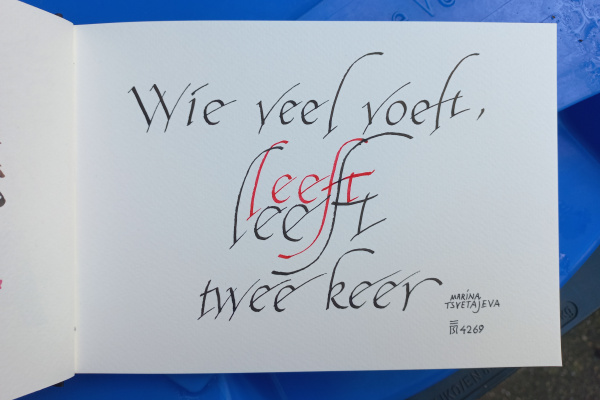 Wie veel voelt,
leeft
leeft
twee keer
MARINA
TSVETAJEVA
4269